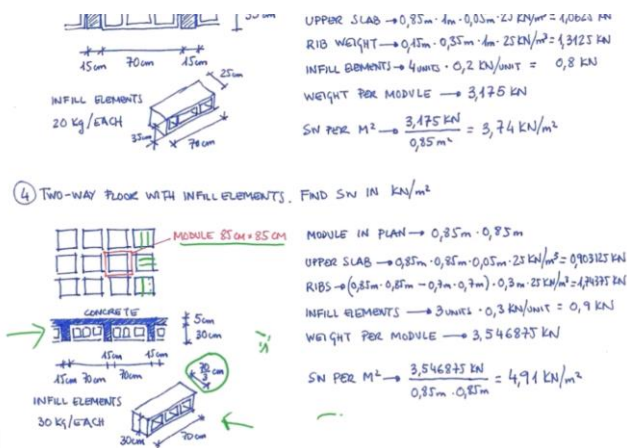 35cm
15cm 70cm 15cm
INFILL ELEMENTS
20 Kg/EACH
25cm
35cm
70cm
UPPER SLAB → 0,85m · 1m · 0,05m · 25 KN/m³ = 1,0625 KN
RIB WEIGHT → 0,15m · 0,35m · 1m · 25 KN/m³ = 1,3125 KN
INFILL ELEMENTS → 4 UNITS · 0,2 KN/UNIT = 0,8 KN
WEIGHT PER MODULE → 3,175 KN
SW PER M² → 3,175 KN / 0,85 m² = 3,74 KN/m²
④ TWO-WAY FLOOR WITH INFILL ELEMENTS. FIND SW IN KN/m²
MODULE 85cm × 85 CM
CONCRETE
5cm
30cm
15cm 15cm
15cm 70cm 70cm
INFILL ELEMENTS
30 Kg/EACH
70/3 cm
30cm
70cm
MODULE IN PLAN → 0,85m · 0,85m
UPPER SLAB → 0,85m · 0,85m · 0,05m · 25 KN/m³ = 0,903125 KN
RIBS → (0,85m · 0,85m − 0,7m · 0,7m) · 0,3m · 25 KN/m³ = 1,74375 KN
INFILL ELEMENTS → 3 UNITS · 0,3 KN/UNIT = 0,9 KN
WEIGHT PER MODULE → 3,546875 KN
SW PER M² → 3,546875 KN / 0,85m · 0,85m = 4,91 KN/m²